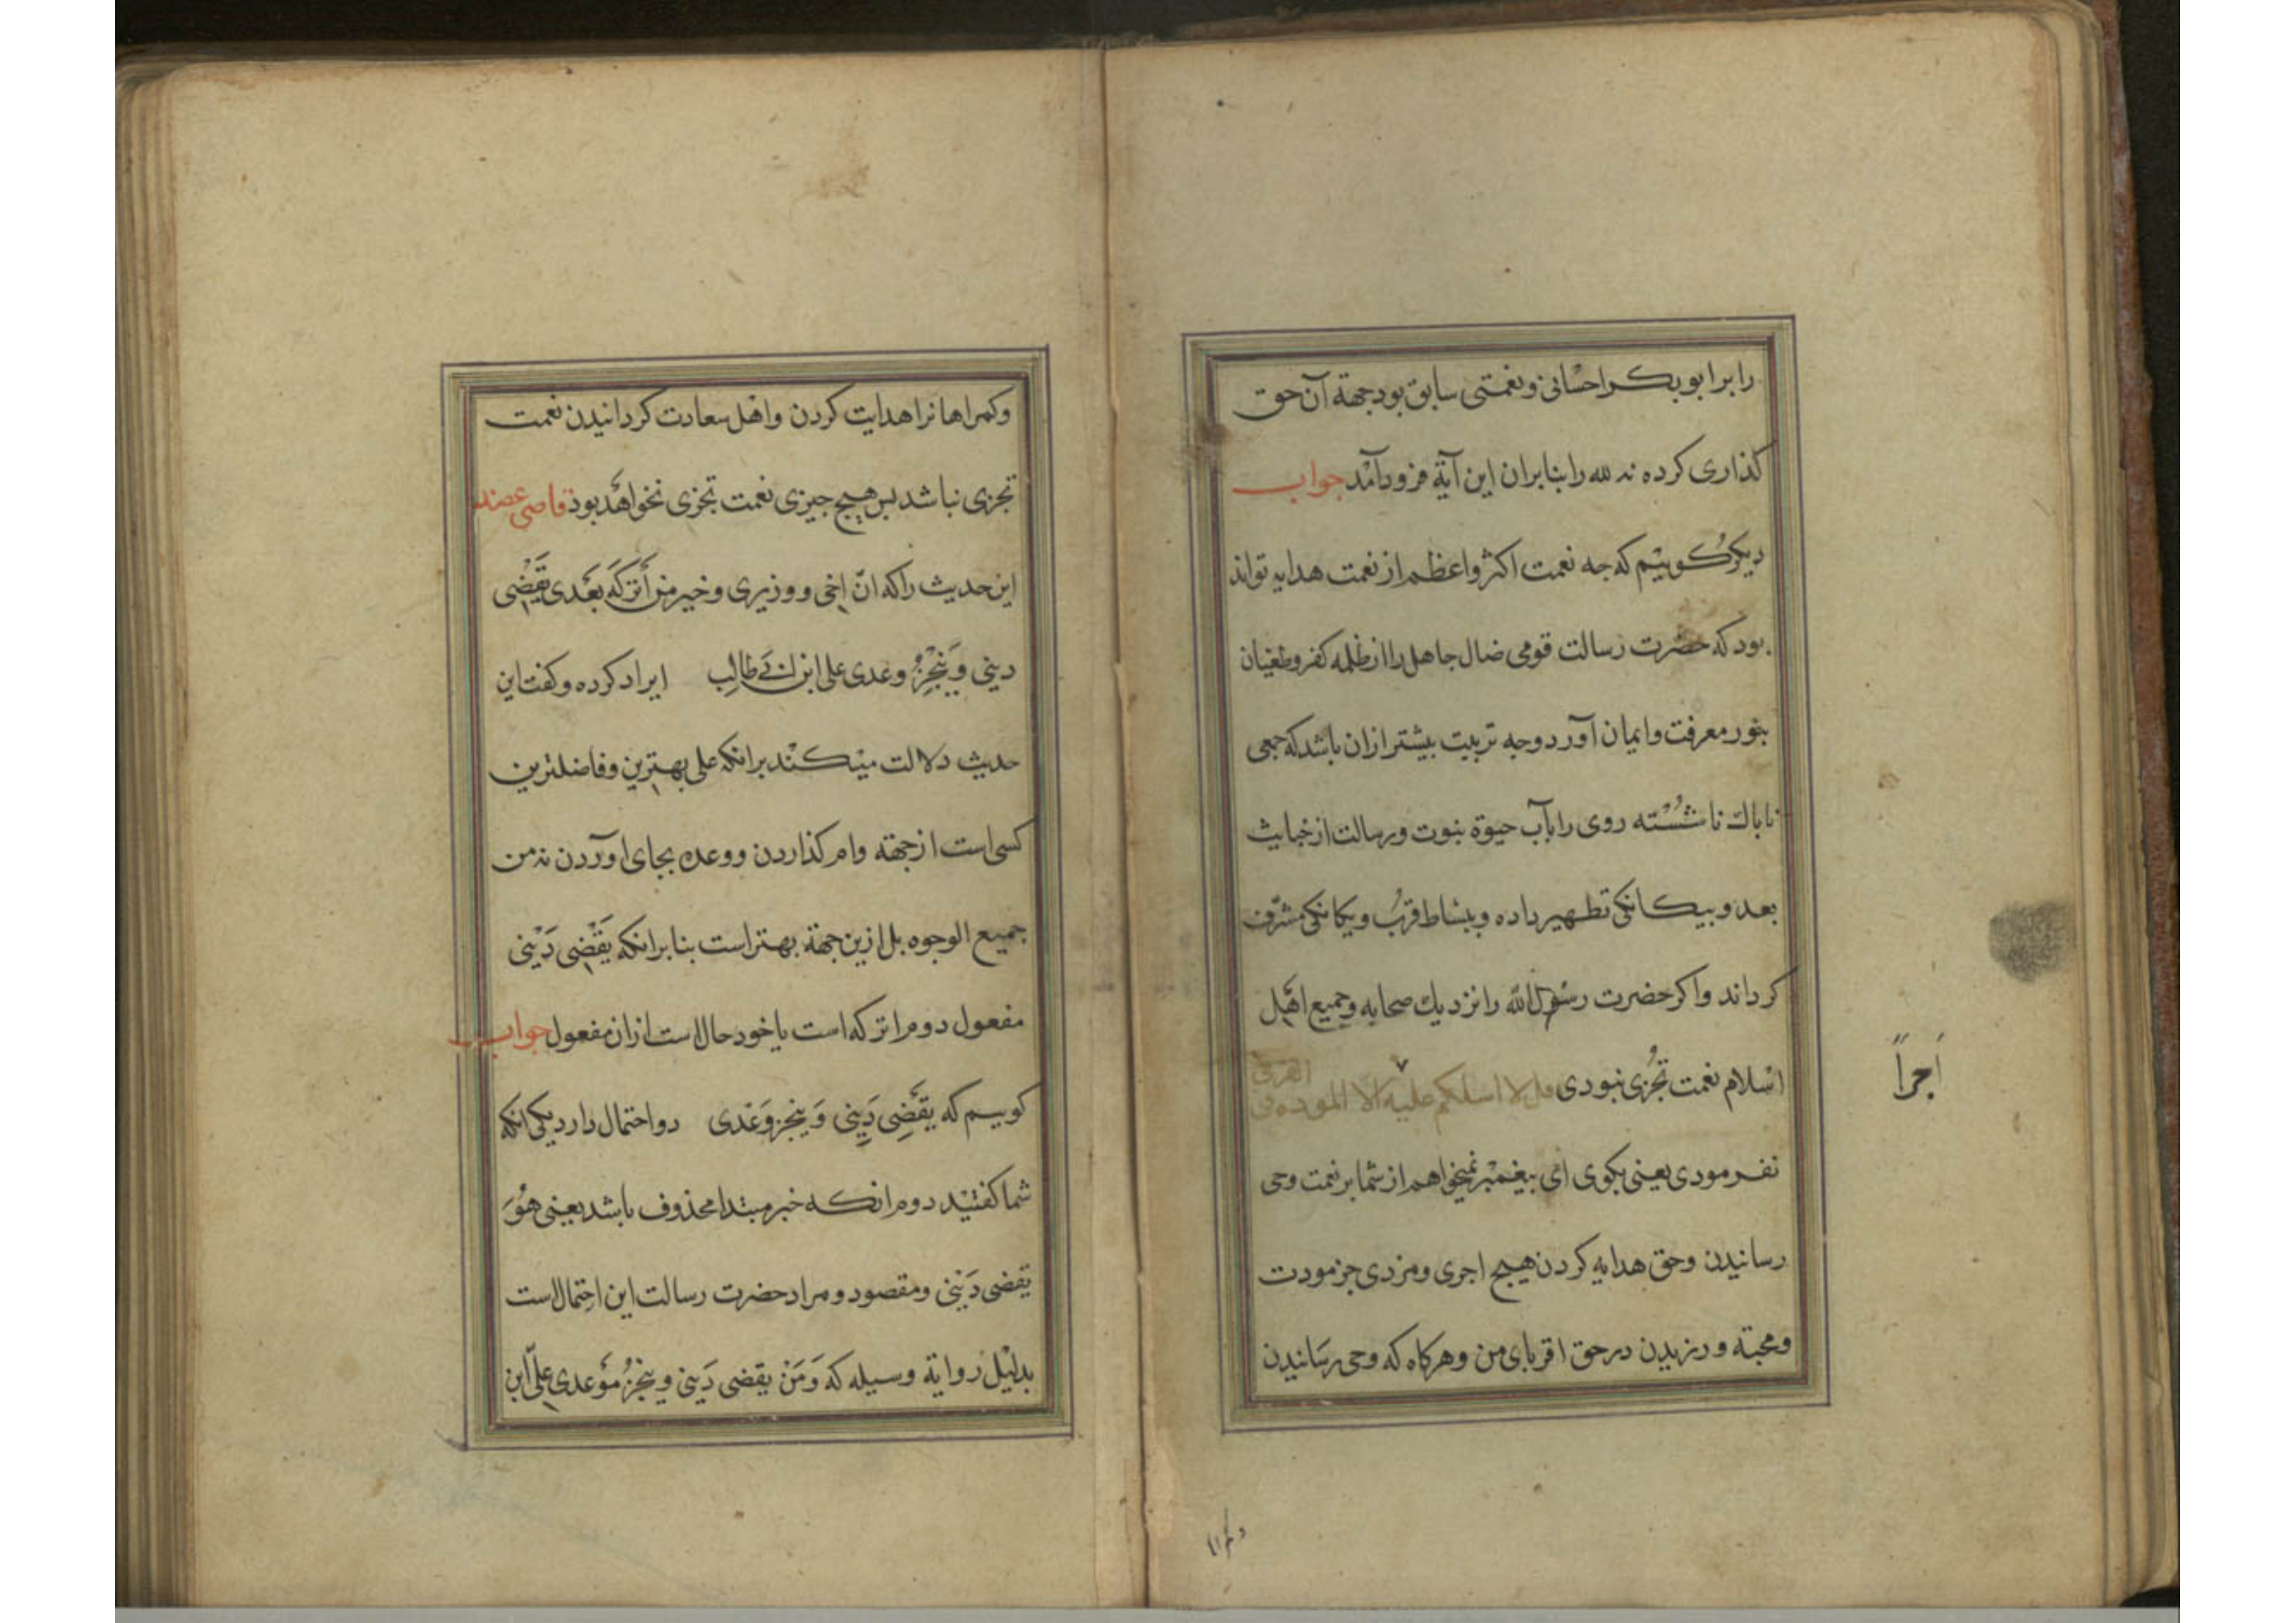 را بر ابو بکر احسانی و نعمتی سابق بود جهة آن حق
کذاری کرده نه لله را بنابران این آیة فرود آمد جواب
دیکر کوییم که جه نعمت اکثر و اعظم از نعمت هدایه تواند
بود که حضرت رسالت قومی ضال جاهل را از ظلمه کفر و طغیان
بنور معرفت و ایمان آورد و جه تربیت بیشتر ازان باشد که جمعی
ناباك ناشُسْته روی را بآب حیوة نبوت و رسالت از خبایث
بعد و بیکانکی تطهیر داده و ببساط قرب و یکانکی مشرّف
کرداند و اکر حضرت رسول الله را نزدیك صحابه و جمیع اهل
اسلام نعمت تُجْزی نبودی قل لا اسلکم علیه الا الموده فی
القربی
اَجراً
نفرمودی یعنی بکوی ای بیغمبر نمیخواهم از شما بر نعمت وحی
رسانیدن و حق هدایه کردن هیج اجری و مزدی جز مودت
و محبته ورزیدن در حق اقربای من و هرکاه که وحی رسانیدن
وکمراهانرا هدایت کردن و اهل سعادت کردانیدن نعمت
تجزی نباشد بس هیج جیزی نعمت تجزی نخواهد بود قاضی عضد
این حدیث را که انّ اخی و وزیری و خیر من أترکه بعدی یَقْضی
دینی وَیُنْجِزُ وعدی علی ابن ابی طالب ایراد کرده و کفت این
حدیث دلالت میکند برانکه علی بهترین و فاضلترین
کسی است از جهته وام کذاردن و وعده بجای آوردن نه من
جمیع الوجوه بل ازین جهة بهتر است بنا برانکه یَقْضی دَیْنی
مفعول دوم اترکه است یا خود حال است ازان مفعول جواب
کوییم که یقضِی دَینی وَینجز وَعْدی دو احتمال دارد یکی انکه
شما کفتید دوم انکه خبر مبتدا محذوف باشد یعنی هُوَ
یقضی دَیْنی و مقصود و مراد حضرت رسالت این احتمال است
بدلیل روایة وسیله که وَمَنْ یقضی دَینی و ینجزُ موعدی علیّ ابن